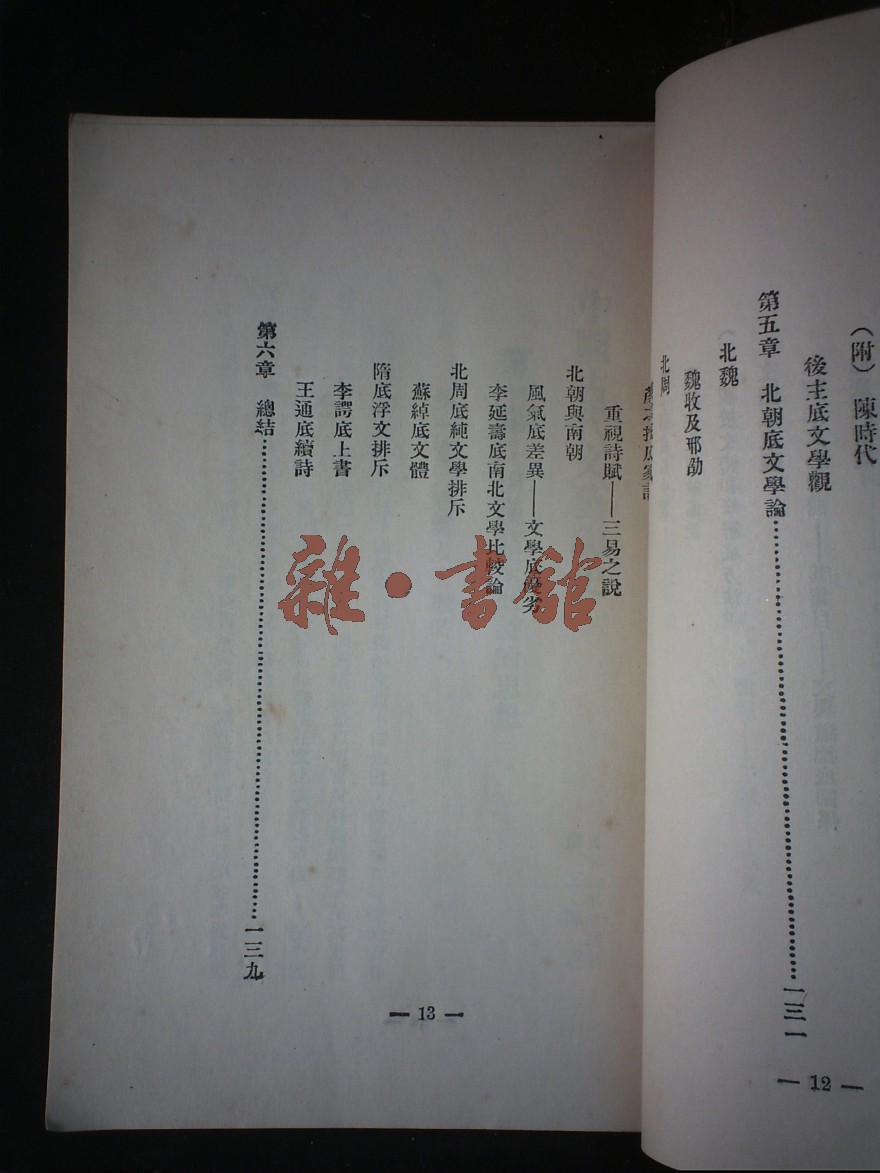 （附）陳時代
後主底文學觀
第五章　北朝底文學論……一三一
北魏
魏收及邢劭
北周
— 12 —
重視詩賦——三易之說
北朝與南朝
風氣底差異——文學底優劣
李延壽底南北文學比較論
北周底純文學排斥
蘇綽底文體
隋底浮文排斥
李諤底上書
王通底續詩
第六章　總結……一三九
— 13 —
雜·書館